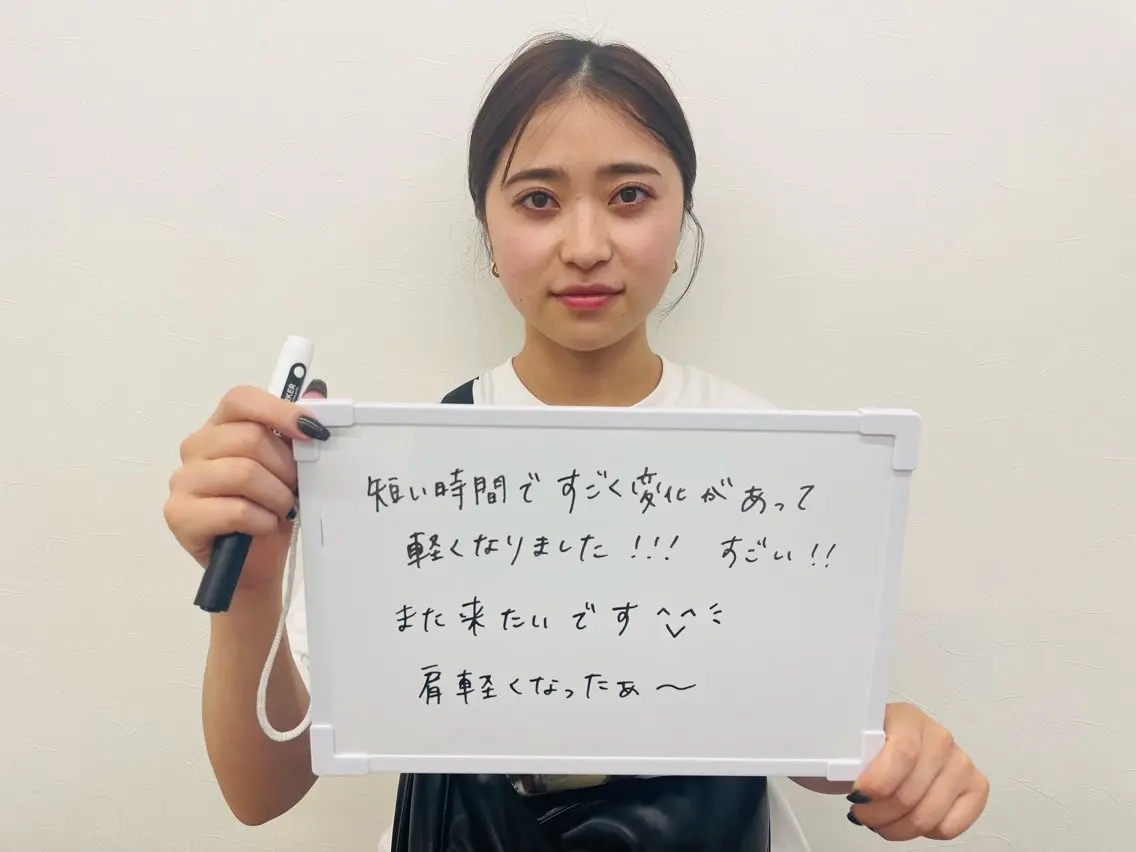 短い時間ですごく変化があって
軽くなりました!!! すごい!!
また来たいです^^
肩軽くなったぁ〜